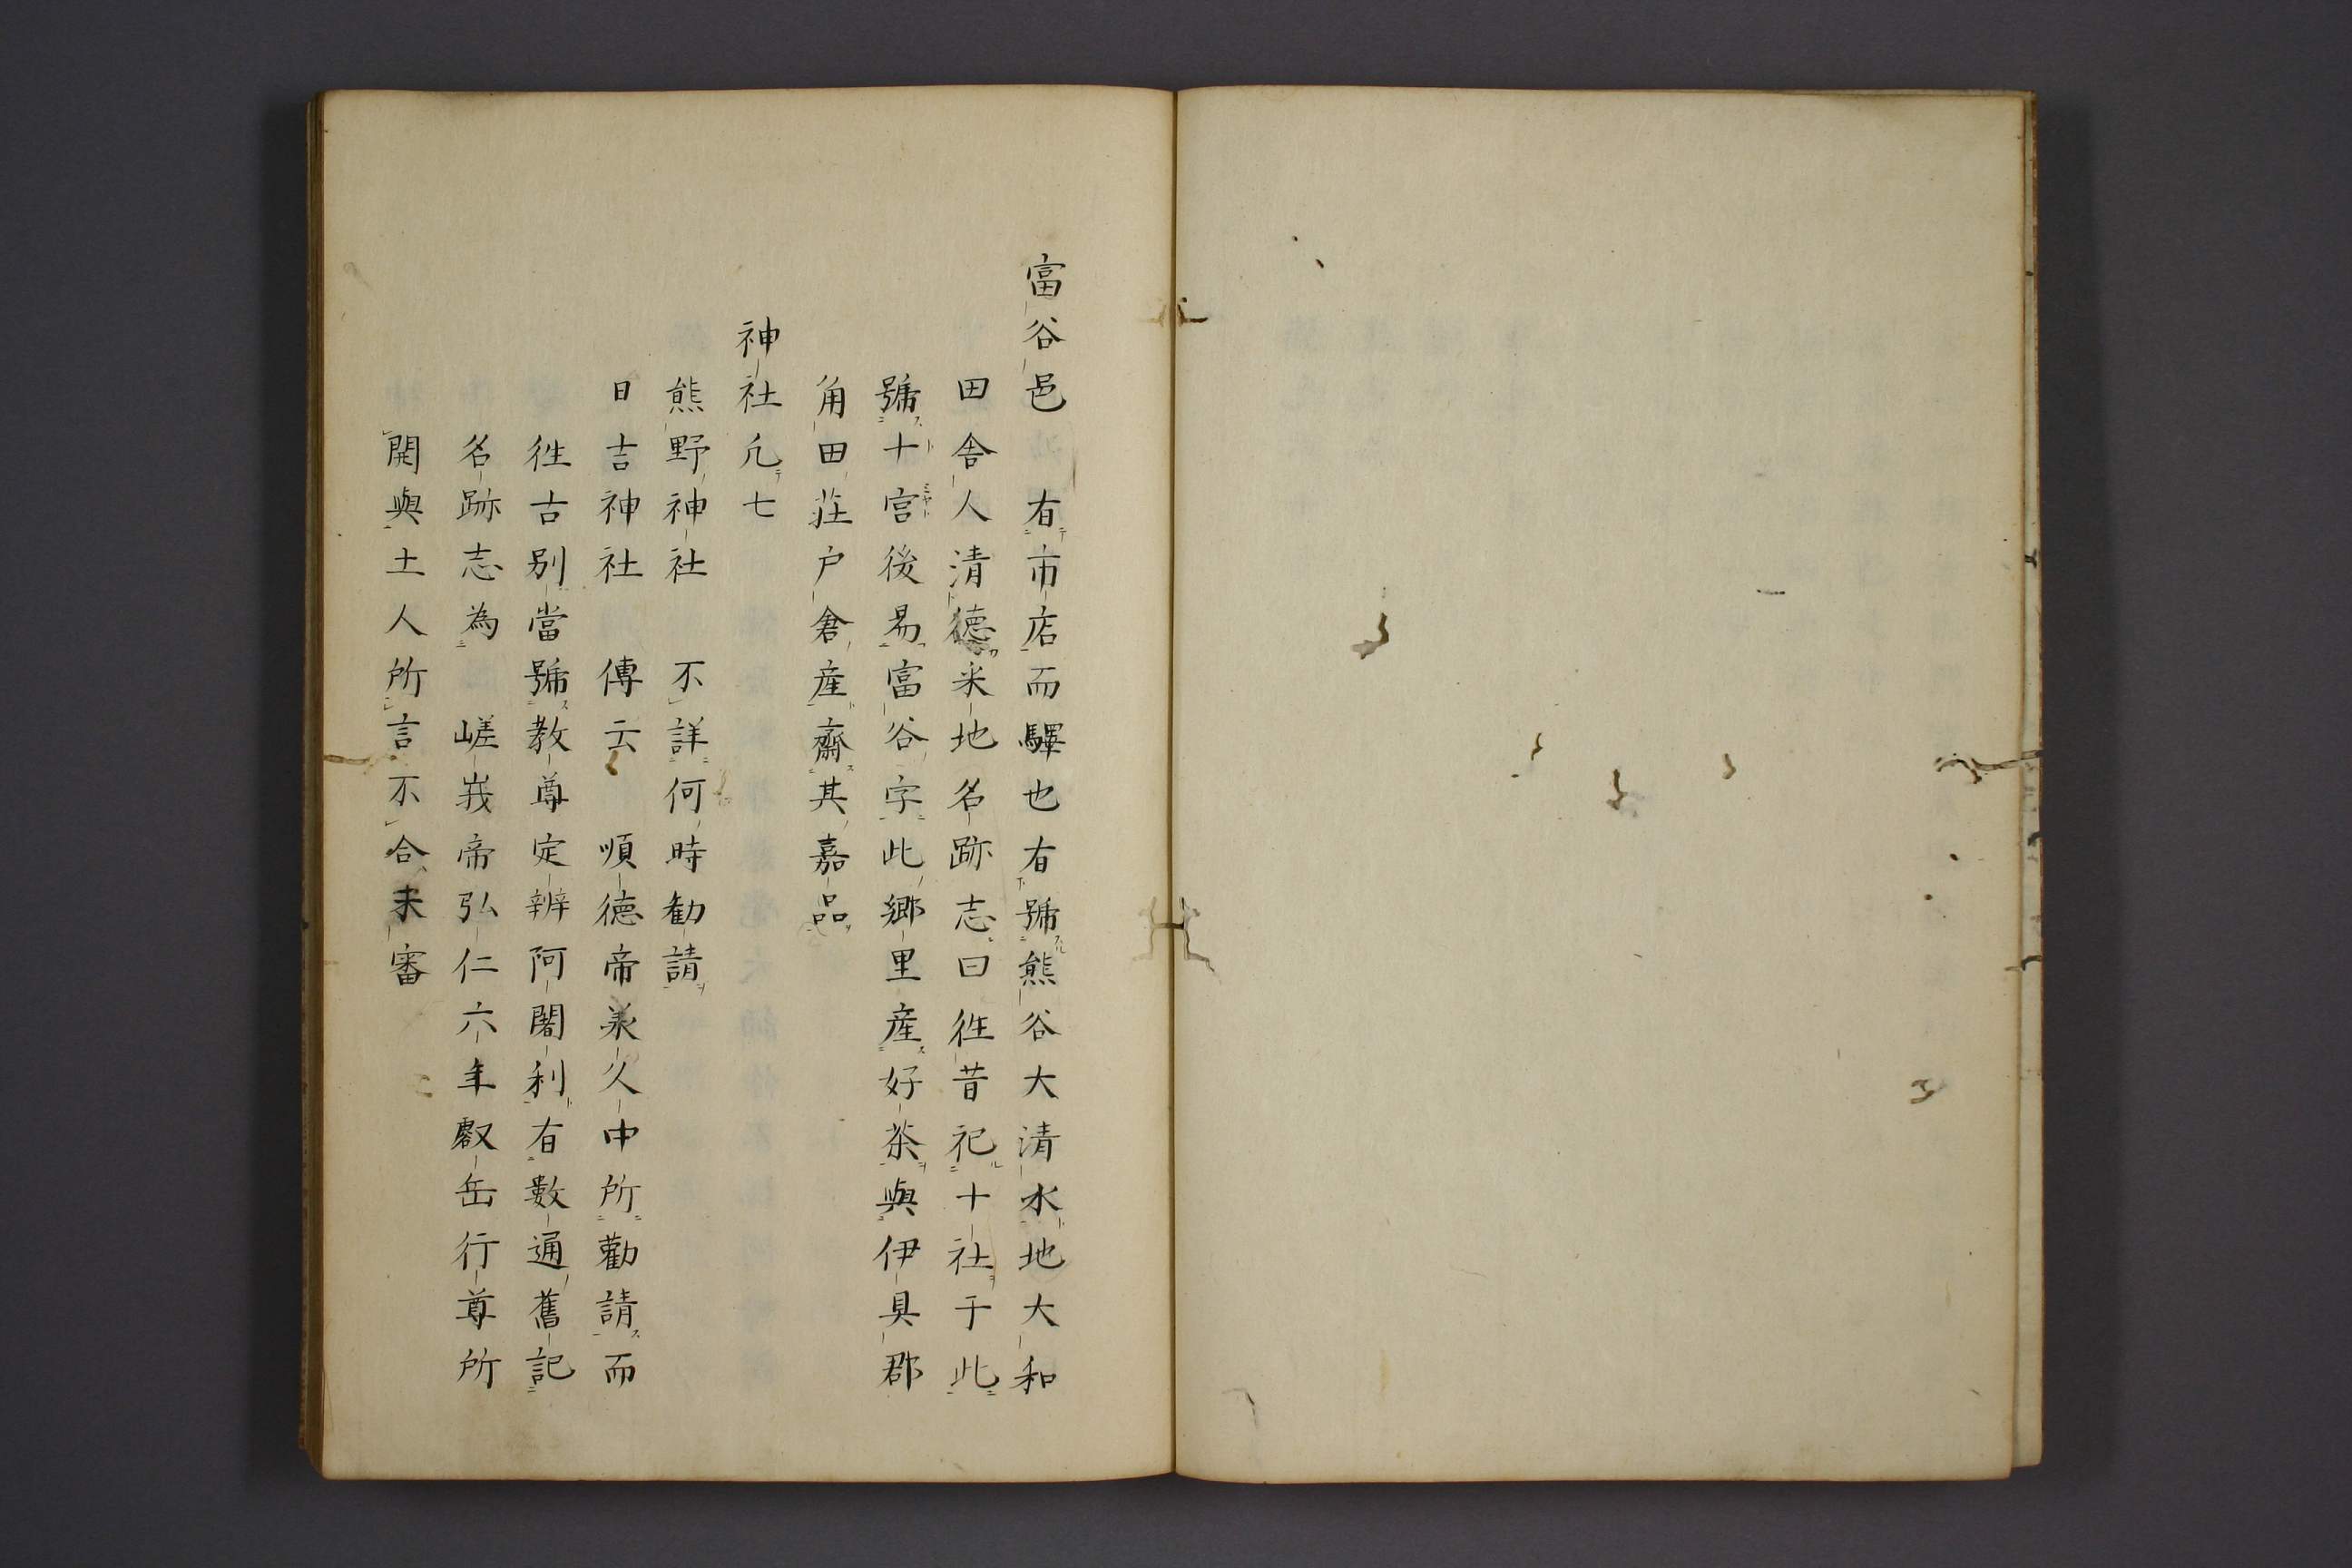 富谷邑　有市店而驛也有號熊谷大清水地大和
田舎人清德釆地名跡志曰徃昔祀十社于此
號十宮後易富谷字此郷里産好茶與伊具郡
角田荘戸倉産齋其嘉品
神社凢七
熊野神社　不詳何時勧請
日吉神社　傳云　順德帝羕久中所勸請而
徃古別當號教尊定辨阿闍利有數通舊記
名跡志為　嵯峩帝弘仁六年叡岳行尊所
開與土人所言不合未審